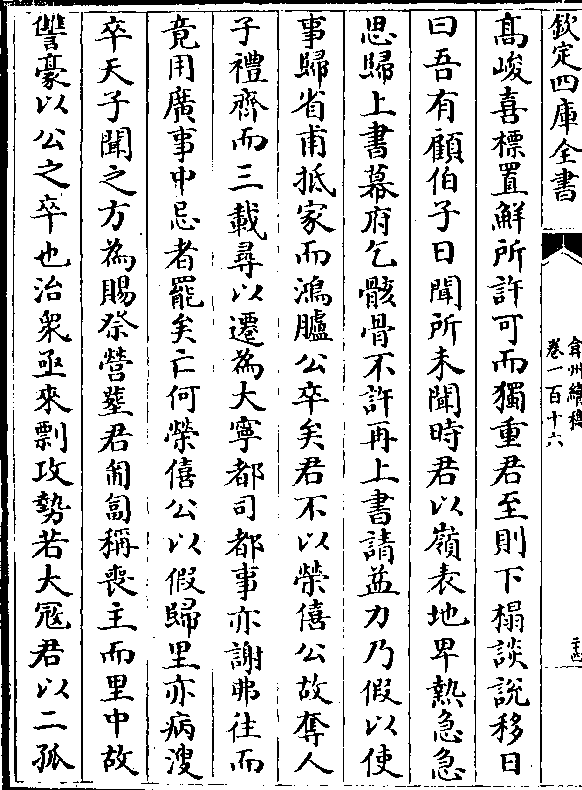 欽定四庫全書
弇州續稿
卷一百十六
髙峻喜標置鮮所許可而獨重君至則下榻談說移日
曰吾有顧伯子日聞所未聞時君以嶺表地卑熱急急
思歸上書幕府乞骸骨不許再上書請益力乃假以使
事歸省甫抵家而鴻臚公卒矣君不以榮僖公故奪人
子禮齊而三載尋以遷為大寧都司都事亦謝弗往而
竟用廣事中忌者罷矣亡何榮僖公以假歸里亦病溲
卒天子聞之方為賜祭營塟君匍匐稱喪主而里中故
讐豪以公之卒也治衆亟來剽攻勢若大冦君以二孤